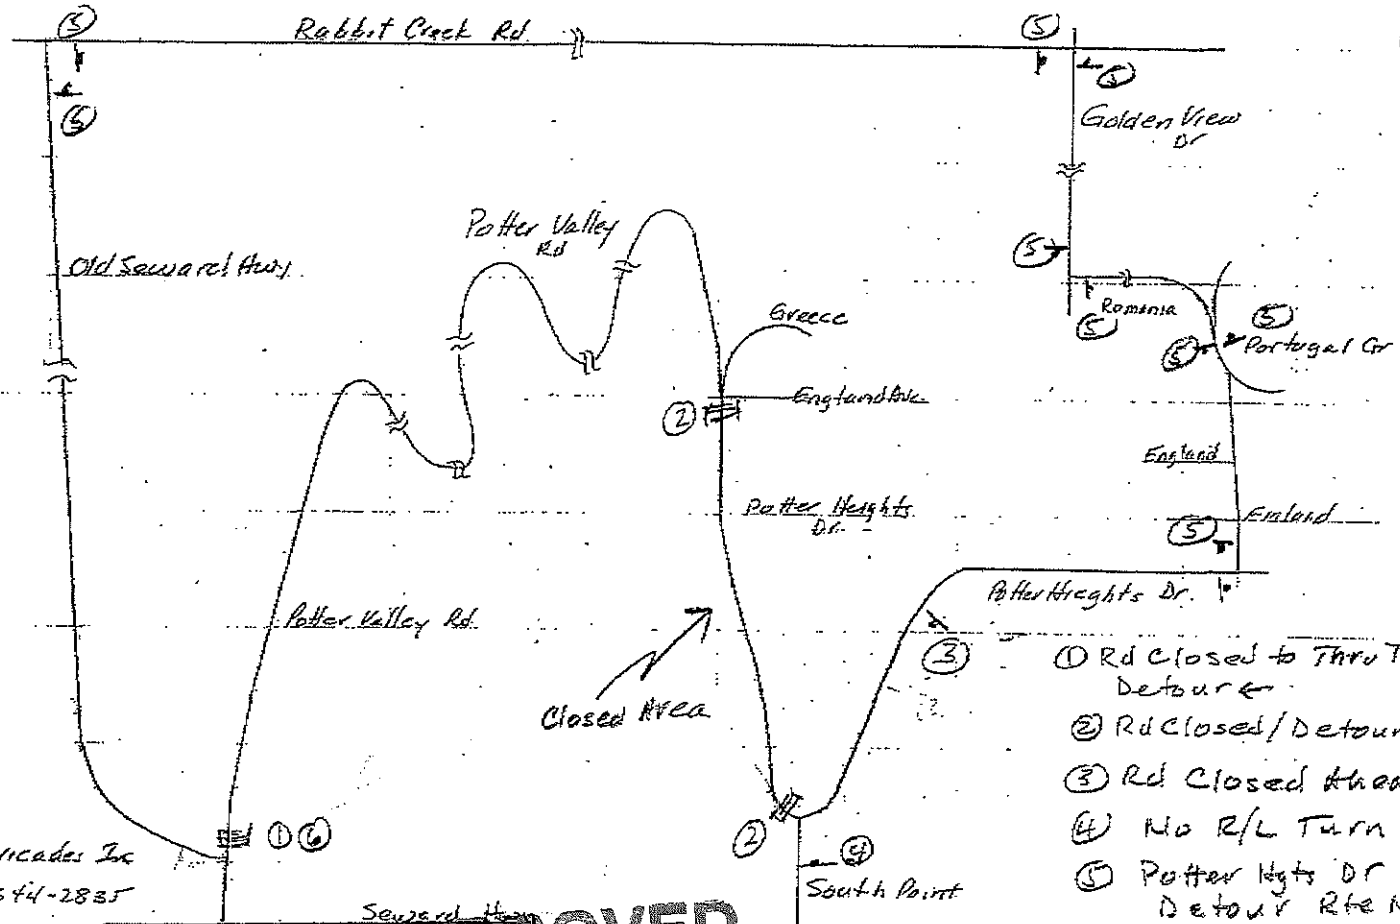 ⑤
Rabbit Creek Rd.
⑤
⑤
⑤
Golden View
Dr
Potter Valley
Rd
Old Seward Hwy.
⑤
Greece
Romania
⑤
⑤
⑤
Portugal Cr
②
England Ave
England
Potter Heights
Dr.
⑤
Potter Hieghts Dr.
Potter Valley Rd
③
Closed Area
① Rd Closed to Thru T
Detour ←
② Rd Closed/Detour
③ Rd Closed Ahea
④ No R/L Turn
⑤ Potter Hgts Dr
Detour Rte
① ⑥
②
④
South Point
ricades Inc
344-2835
Seward
OVED